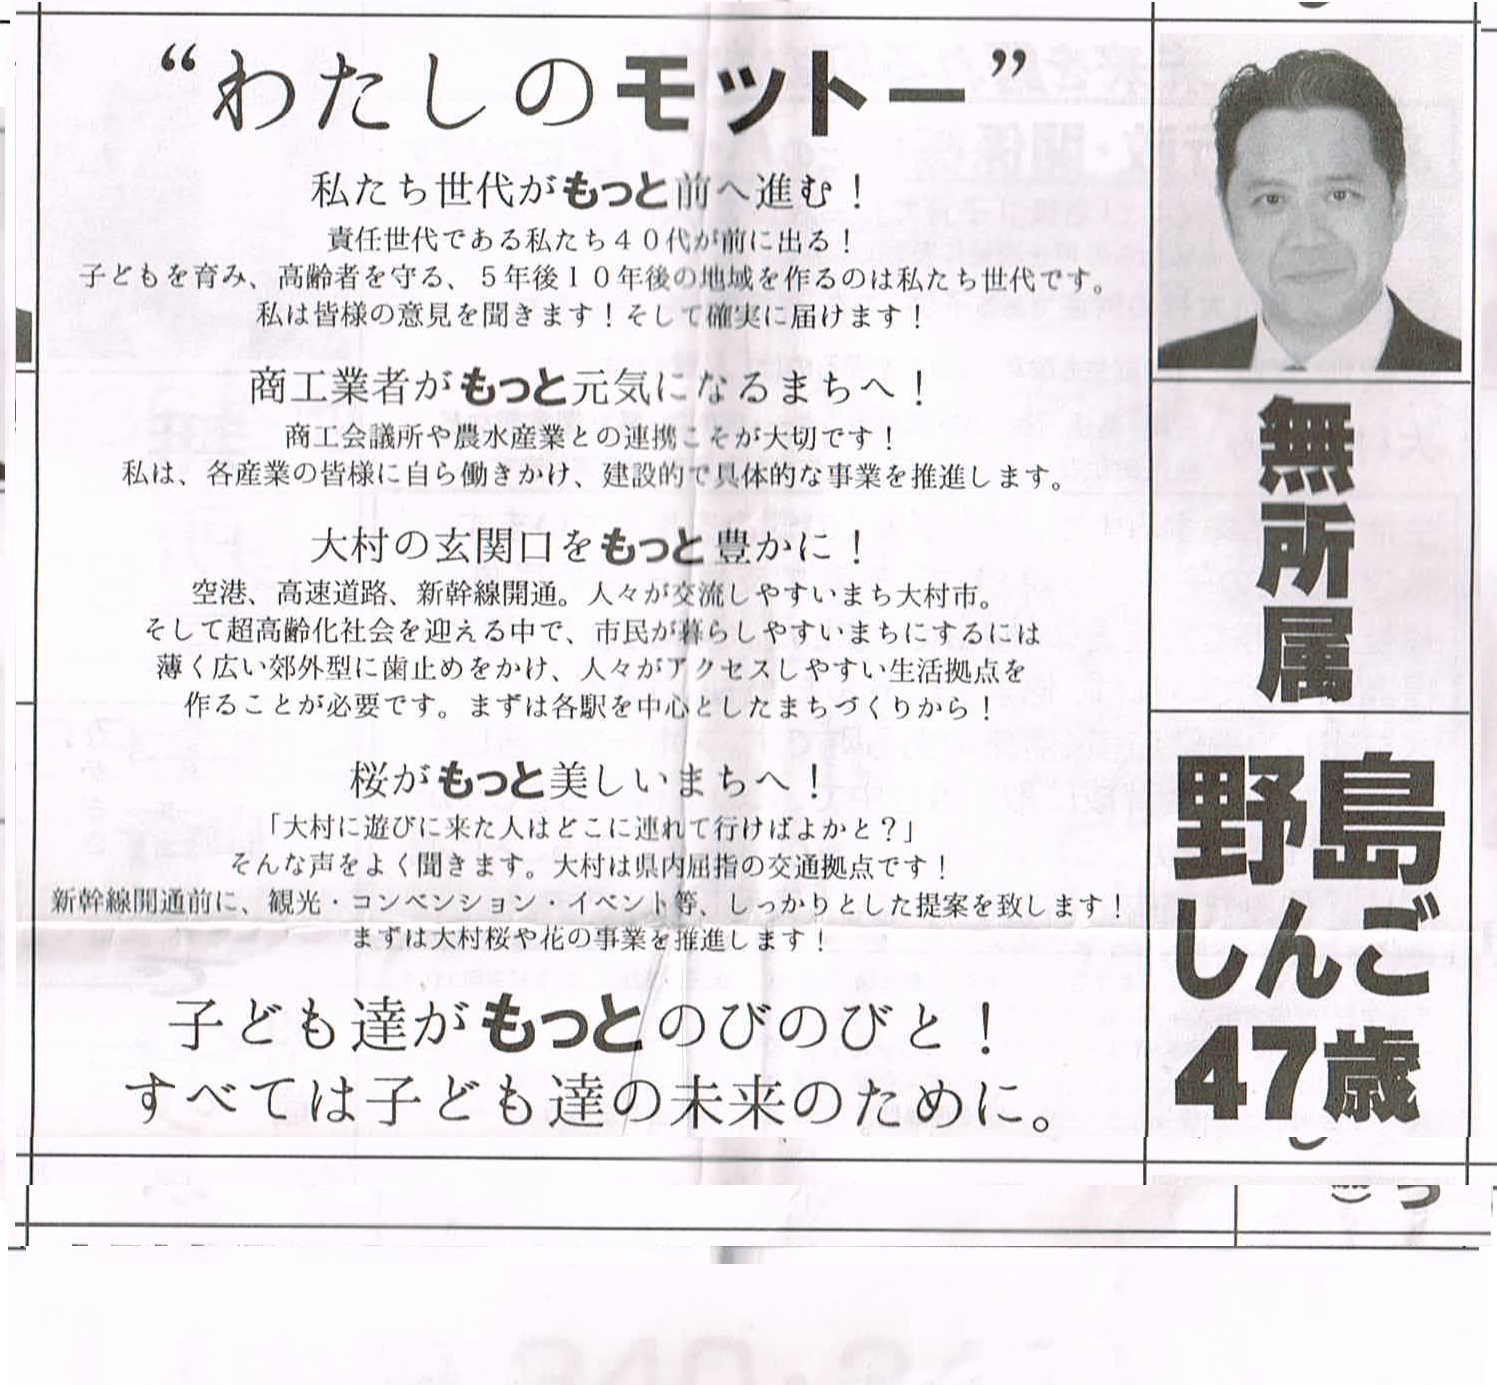 “わたしのモットー”
私たち世代がもっと前へ進む！
責任世代である私たち４０代が前に出る！
子どもを育み、高齢者を守る、５年後１０年後の地域を作るのは私たち世代です。
私は皆様の意見を聞きます！そして確実に届けます！
商工業者がもっと元気になるまちへ！
商工会議所や農水産業との連携こそが大切です！
私は、各産業の皆様に自ら働きかけ、建設的で具体的な事業を推進します。
大村の玄関口をもっと豊かに！
空港、高速道路、新幹線開通。人々が交流しやすいまち大村市。
そして超高齢化社会を迎える中で、市民が暮らしやすいまちにするには
薄く広い郊外型に歯止めをかけ、人々がアクセスしやすい生活拠点を
作ることが必要です。まずは各駅を中心としたまちづくりから！
桜がもっと美しいまちへ！
「大村に遊びに来た人はどこに連れて行けばよかと？」
そんな声をよく聞きます。大村は県内屈指の交通拠点です！
新幹線開通前に、観光・コンベンション・イベント等、しっかりとした提案を致します！
まずは大村桜や花の事業を推進します！
子ども達がもっとのびのびと！
すべては子ども達の未来のために。
無所属
野島
しんご
47歳